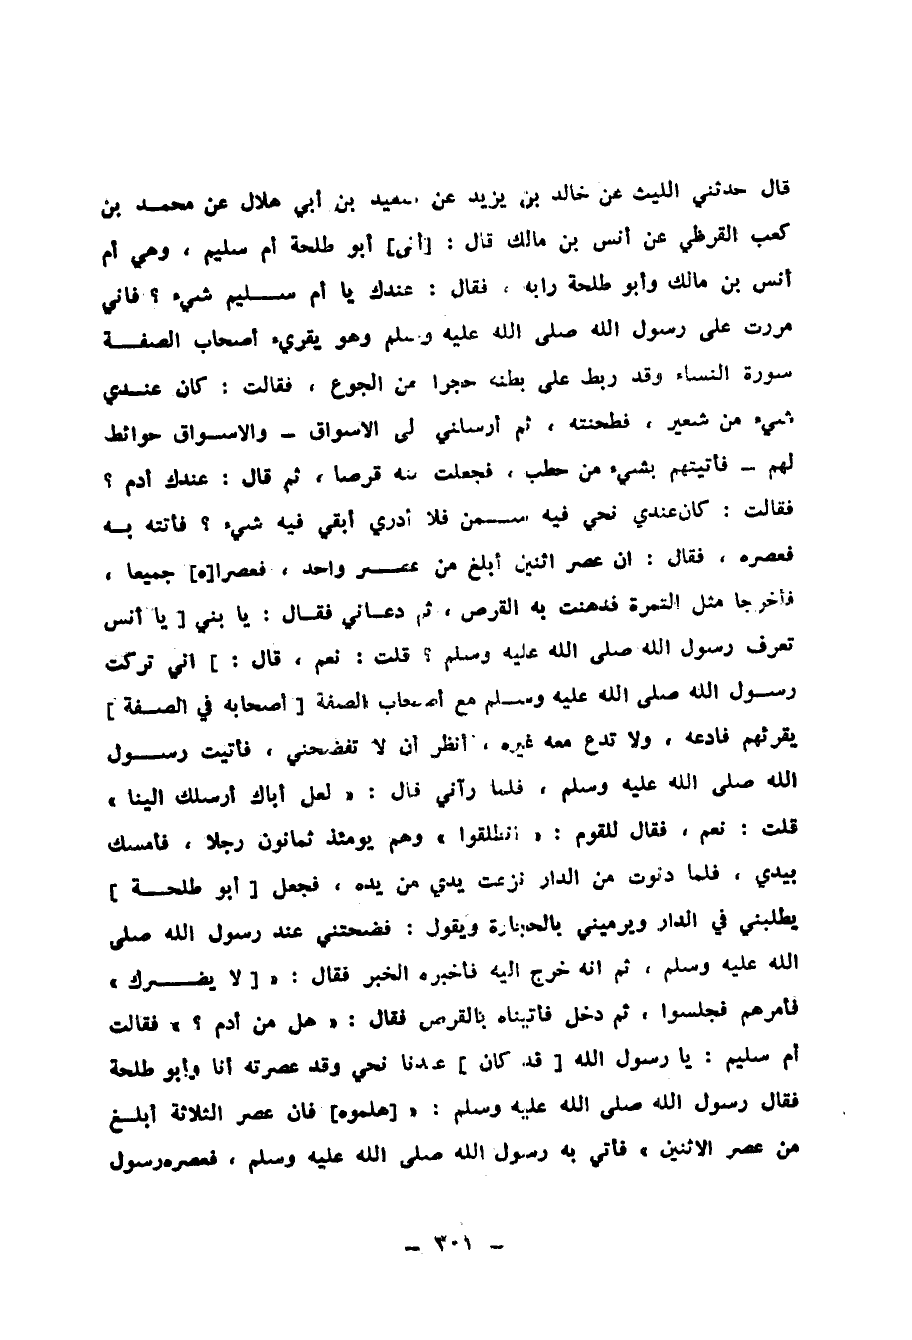 قال حدثني الليث عن خالد بن يزيد عن سعيد بن أبي هلال عن محمد بن
كعب القرظي عن أنس بن مالك قال : [أتى] أبو طلحة أم سليم ، وهي أم
أنس بن مالك وأبو طلحة رابه ، فقال : عندك يا أم سليم شيء ؟ فاني
مررت على رسول الله صلى الله عليه وسلم وهو يقريء أصحاب الصفة
سورة النساء وقد ربط على بطنه حجرا من الجوع ، فقالت : كان عندي
شيء من شعير ، فطحنته ، ثم أرسلني لى الاسواق – والاسواق حوائط
لهم – فأتيتهم بشيء من حطب ، فجعلت منه قرصا ، ثم قال : عندك أدم ؟
فقالت : كان عندي نحي فيه سمن فلا أدري أبقي فيه شيء ؟ فأتته به
فعصره ، فقال : ان عصر اثنين أبلغ من عصر واحد ، فعصرا[ه] جميعا ،
فأخرجا مثل التمرة فدهنت به القرص ، ثم دعاني فقال : يا بني [ يا أنس
تعرف رسول الله صلى الله عليه وسلم ؟ قلت : نعم ، قال : ] اني تركت
رسول الله صلى الله عليه وسلم مع أصحاب الصفة [ أصحابه في الصفة ]
يقرئهم فادعه ، ولا تدع معه غيره ، أنظر أن لا تفضحني ، فأتيت رسول
الله صلى الله عليه وسلم ، فلما رآني قال : « لعل أباك أرسلك الينا »
قلت : نعم ، فقال للقوم : « انطلقوا » وهم يومئذ ثمانون رجلا ، فأمسك
بيدي ، فلما دنوت من الدار نزعت يدي من يده ، فجعل [ أبو طلحة ]
يطلبني في الدار ويرميني بالحجارة ويقول : فضحتني عند رسول الله صلى
الله عليه وسلم ، ثم انه خرج اليه فأخبره الخبر فقال : « [ لا يضرك »
فأمرهم فجلسوا ، ثم دخل فأتيناه بالقرص فقال : « هل من أدم ؟ » فقالت
أم سليم : يا رسول الله [ قد كان ] عندنا نحي وقد عصرته أنا وأبو طلحة
فقال رسول الله صلى الله عليه وسلم : « [هلموه] فان عصر الثلاثة أبلغ
من عصر الاثنين » فأتي به رسول الله صلى الله عليه وسلم ، فعصره رسول
– ٣٠١ –